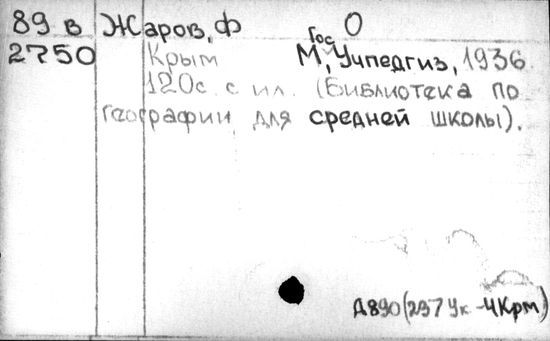 89 в Жаров, Ф О
2750 Крым М, Гос Учпедгиз, 1936.
120с. с ил. (Библиотека по
географии для средней школы).
Д890(297Ук-4Крт)